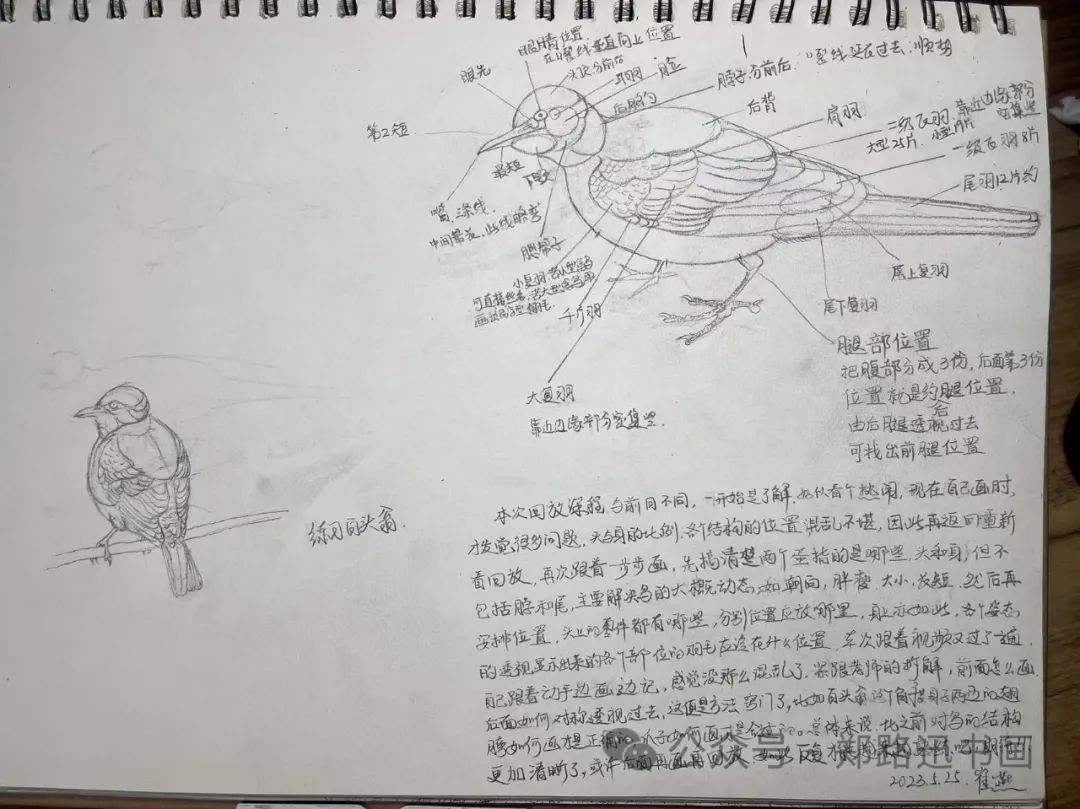 眼睛位置
在嘴线垂直向上位置
头顶分前后
眼先
耳羽
脸
后脑勺
脖子分前后.
嘴线延长过去, 顺势
后背
肩羽
二级飞羽,靠近边缘部分密集些
大型25片
一级飞羽8片
尾羽12片约
第2短
最短
下颏
嘴,深线.
中间
腮帮子
小复羽
可直接丝毛
千斤羽
大复羽
靠近边缘部分密集些.
尾上复羽
尾下复羽
腿部位置
把腹部分成3份, 后面第3份
位置就是约腿位置.
由后腿透视过去
后
可找出前腿位置
练习白头翁.
本次回放课程,与前回不同,一开始是了解,好似看个热闹,现在自己画时,
才发觉很多问题,头与身的比例.各个结构的位置混乱不堪,因此再返回重新
看回放,再次跟着一步步画,先搞清楚两个蛋指的是哪些,头和身,但不
包括脖和尾,主要解决鸟的大概动态,如朝向,胖瘦.大小,长短.然后再
安排位置,头上的零件都有哪些,分别位置应放哪里,身上亦如此,各个姿态
的透视显示出来的各个部位的羽毛应该在什么位置.本次跟着视频又过了一遍.
自己跟着动手边画边记,感觉没那么混乱了.紧跟老师的拆解,前面怎么画.
后面如何对称透视过去,这便是方法窍门了,比如白头翁这个角度身子两边的翅
膀如何画才是正确的.爪子如何画才是合适的.总体来说.比之前对鸟的结构
更加清晰了,或许后面再画再回放
2023.5.25.
公众号·郑路迅书画